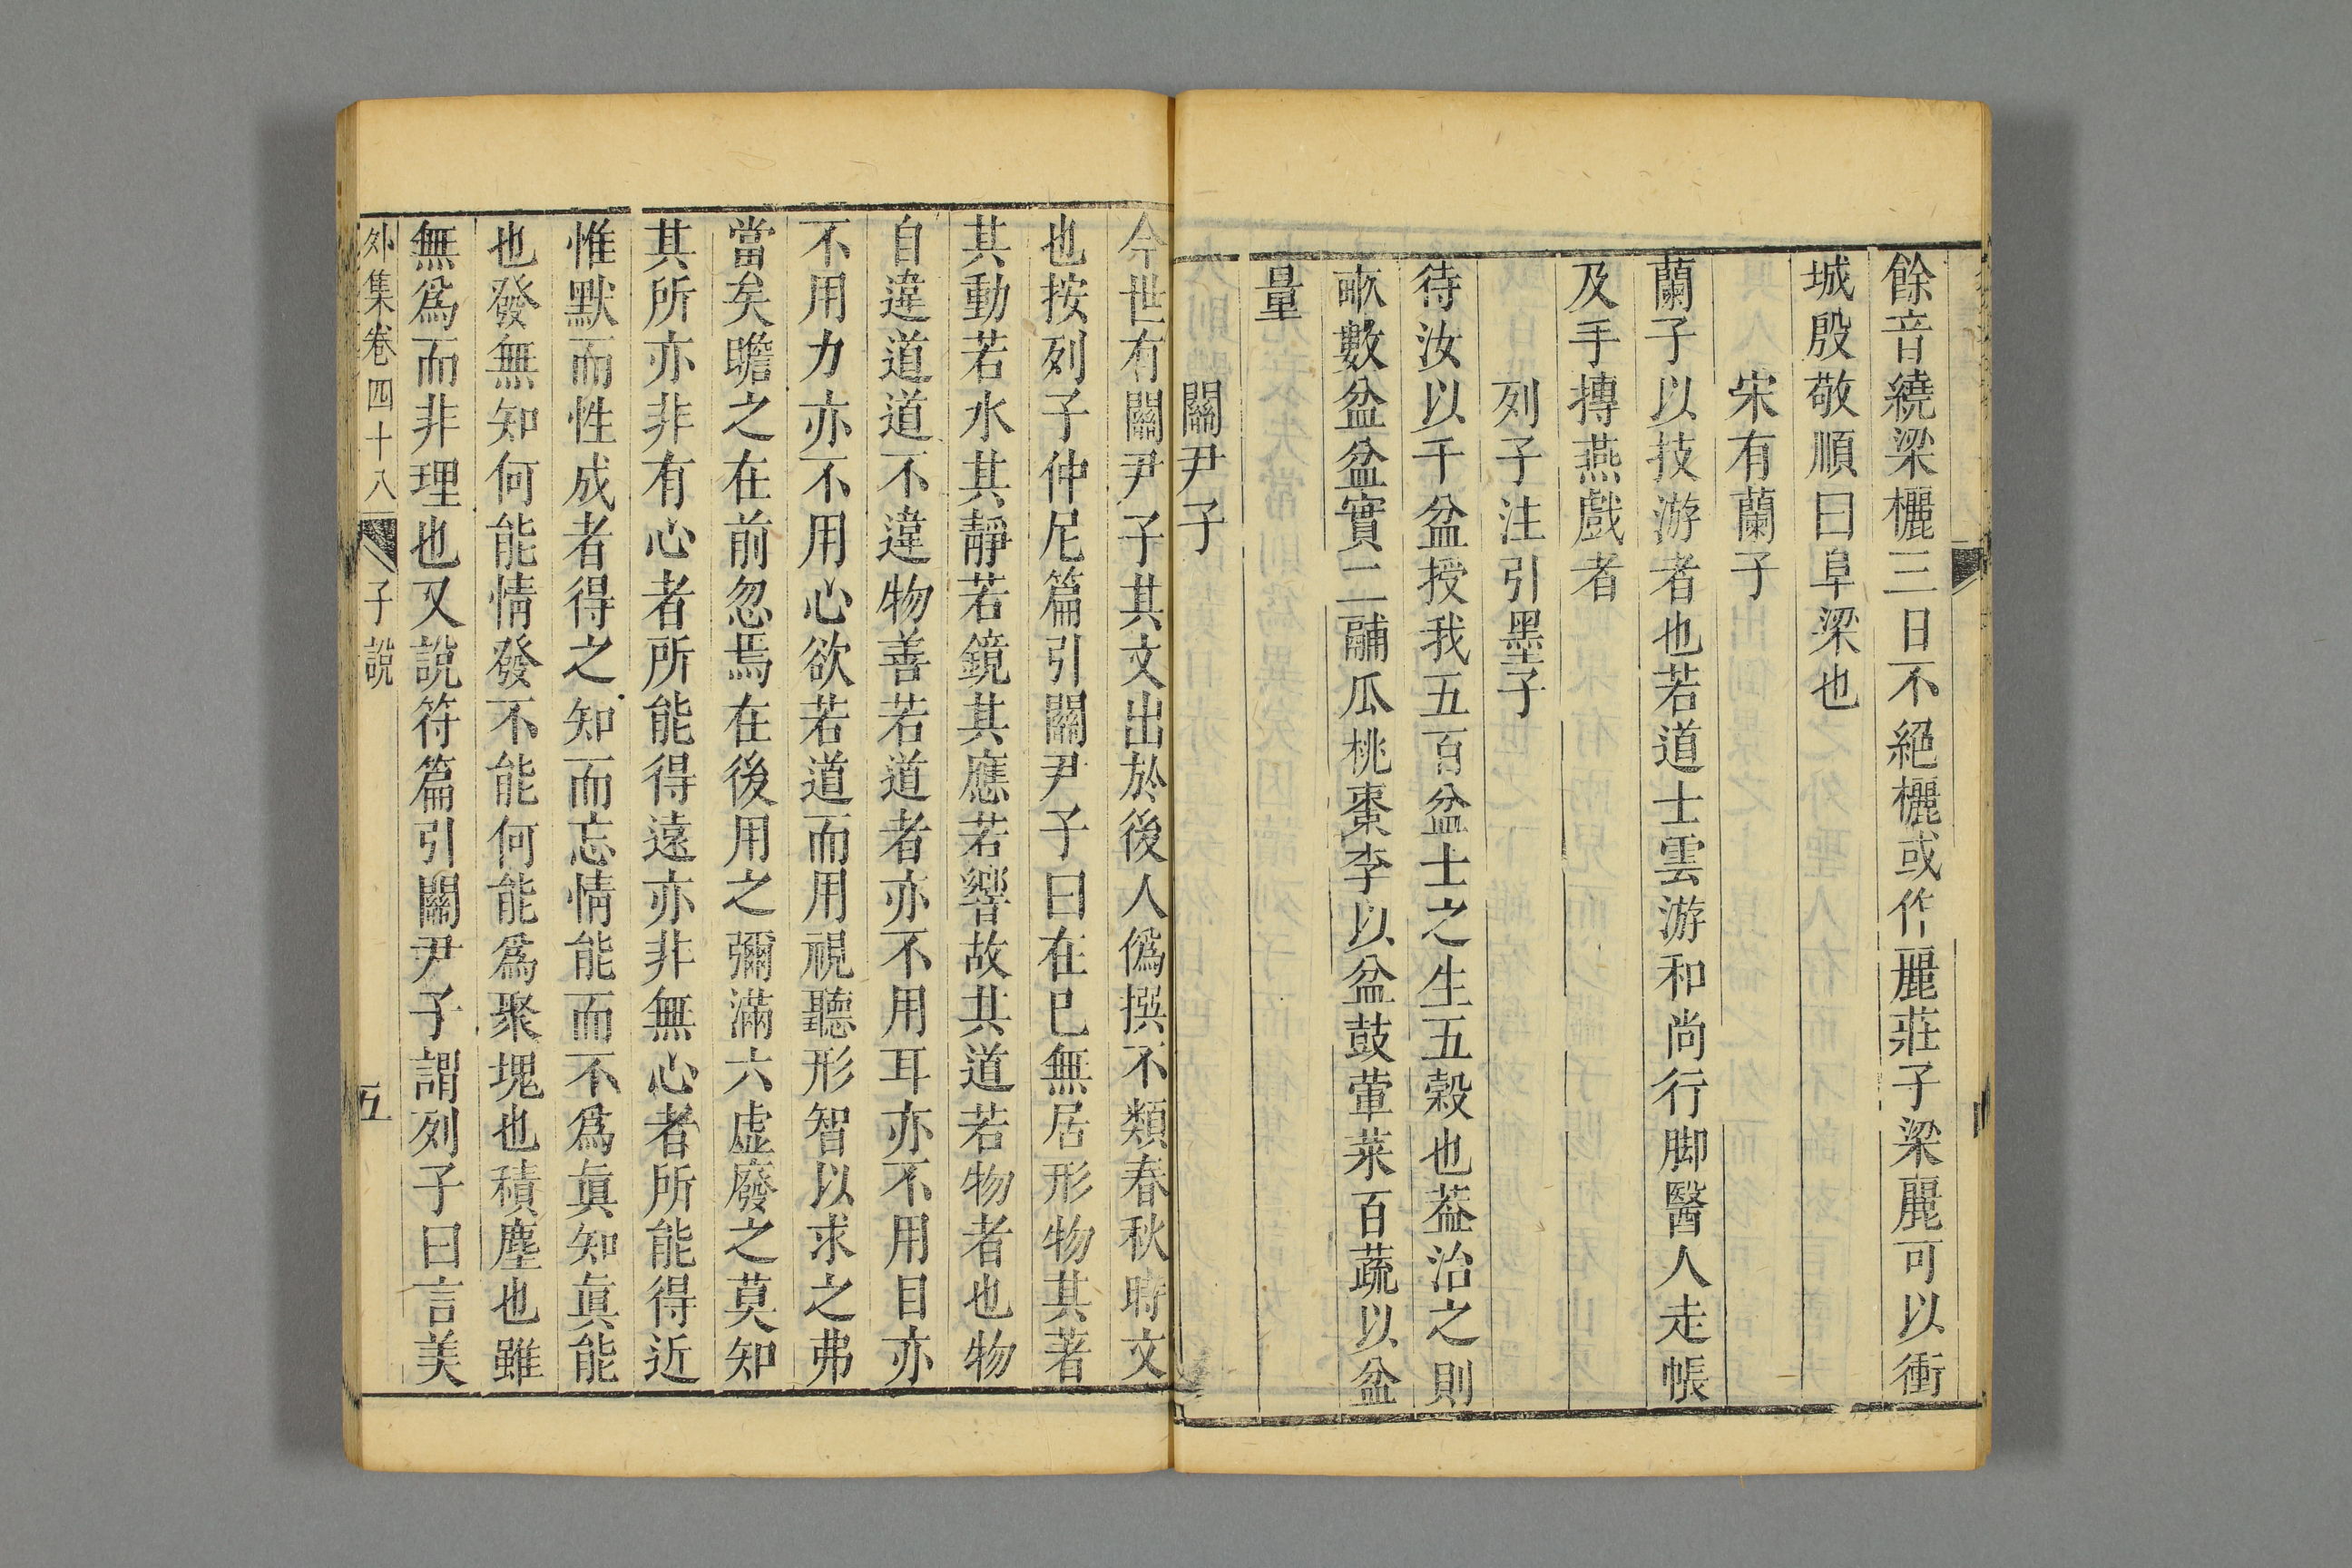 餘音繞梁欐三日不絕欐或作麗莊子梁麗可以衝
城殷敬順曰阜梁也
宋有蘭子
蘭子以技游者也若道士雲游和尚行脚醫人走帳
及手摶燕戲者
列子注引墨子
待汝以千盆授我五百盆士之生五穀也葢治之則
畝數盆盆實二鬴瓜桃棗李以盆鼓葷菜百蔬以盆
量
關尹子
今世有關尹子其文出於後人僞撰不類春秋時文
也按列子仲尼篇引關尹子曰在已無居形物其著
其動若水其靜若鏡其應若響故其道若物者也物
自違道道不違物善若道者亦不用耳亦不用目亦
不用力亦不用心欲若道而用視聽形智以求之弗
當矣瞻之在前忽焉在後用之彌滿六虛廢之莫知
其所亦非有心者所能得遠亦非無心者所能得近
惟默而性成者得之知而忘情能而不爲眞知眞能
也發無知何能情發不能何能爲聚塊也積塵也雖
無爲而非理也又說符篇引關尹子謂列子曰言美
外集卷四十八 子說 五